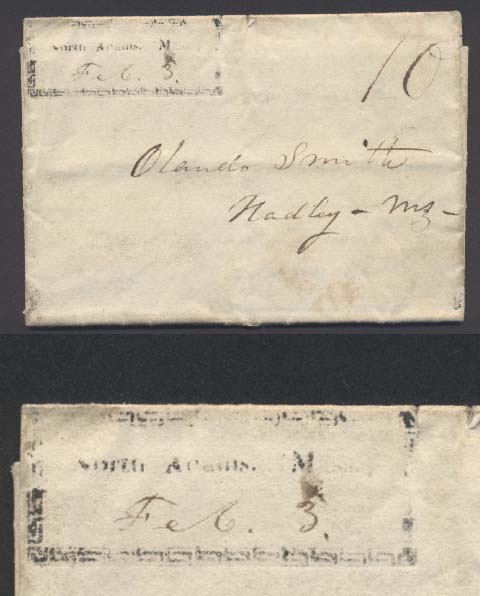 North Adams. (Mass.)
Feb. 3.
10
Olando Smith
Hadley - Ms -
North Adams. (Mass.)
Feb. 3.